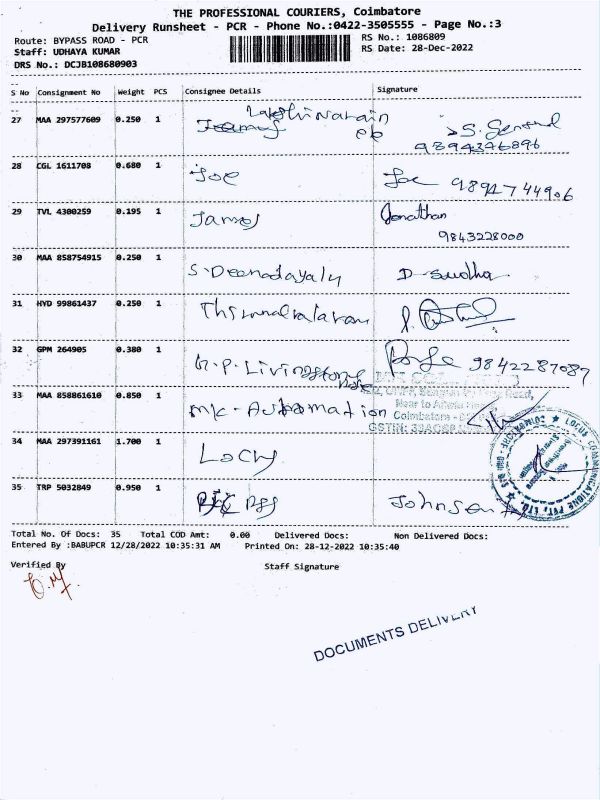 THE PROFESSIONAL COURIERS, Coimbatore
Delivery Runsheet - PCR - Phone No.:0422-3505555 - Page No.:3
Route: BYPASS ROAD - PCR
RS No.: 1086809
Staff: UDHAYA KUMAR
RS Date: 28-Dec-2022
DRS No.: DCJB108680903
S No Consignment No Weight PCS Consignee Details Signature
27 MAA 297577609 0.250 1
9894346896
28 CGL 1611708 0.680 1 Joe Joe
29 TVL 4300259 0.195 1 James Jonathan
9843228000
30 MAA 858754915 0.250 1 S. Deenadayalu D. Sudha
31 HYD 99861437 0.250 1
32 GPM 264905 0.380 1 Livingstone 9842287087
33 MAA 858861610 0.850 1 Automation
Coimbatore
34 MAA 297391161 1.700 1
35 TRP 5032849 0.950 1 Johnson
Total No. Of Docs: 35 Total COD Amt: 0.00 Delivered Docs: Non Delivered Docs:
Entered By :BABUPCR 12/28/2022 10:35:31 AM Printed On: 28-12-2022 10:35:40
Verified By Staff Signature
DOCUMENTS DELIVERY